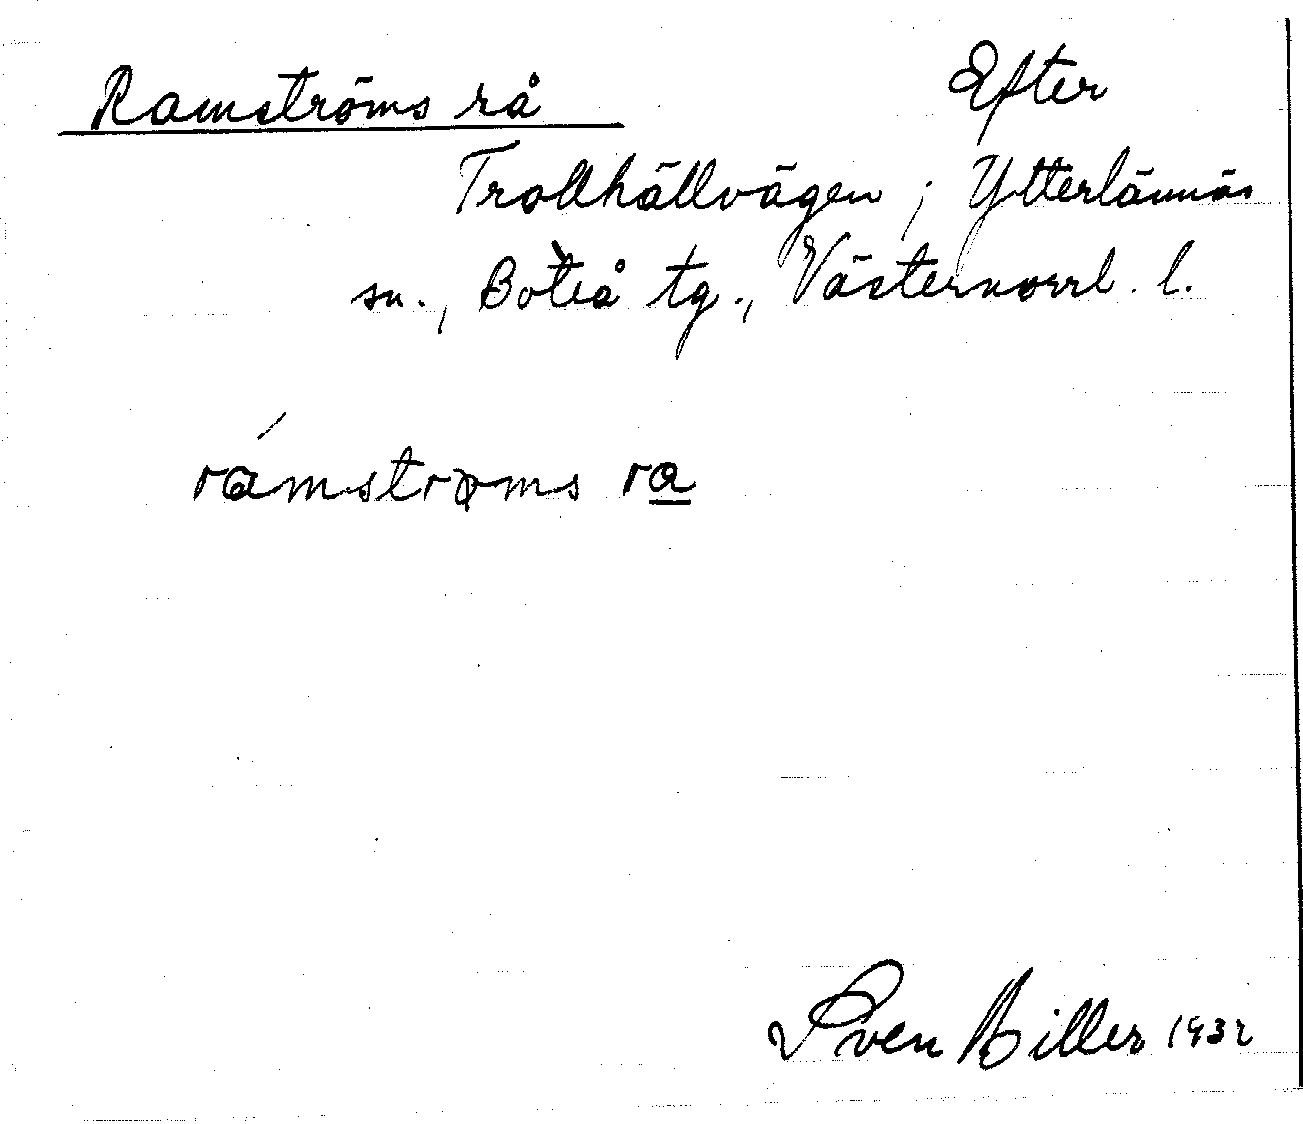 Ramströms rå Efter
Trollhällvägen ; Ytterlännäs
sn., Boteå tg., Västernorrl. l.
rámstrøms ra
Sven Biller 1932